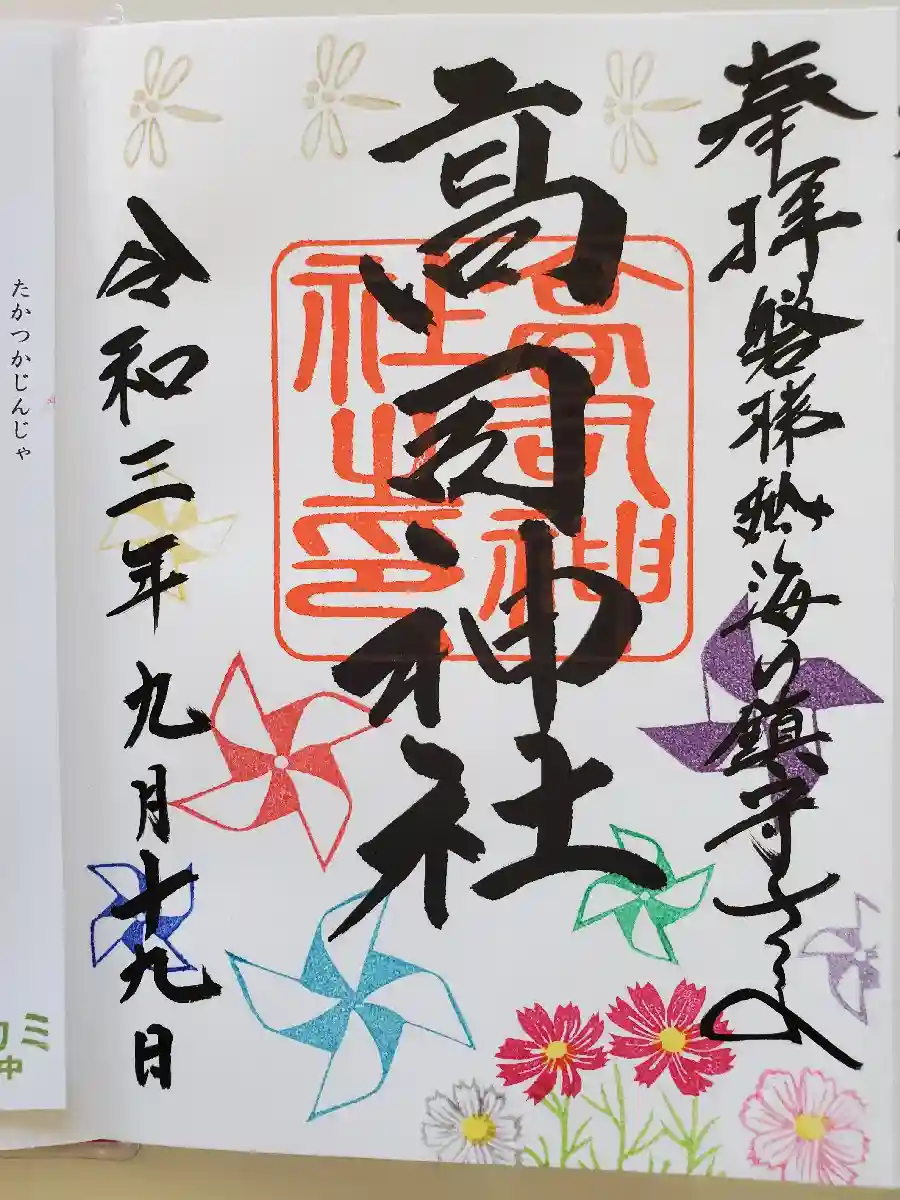 奉拝磐梯熱海の鎮守さま
高司神社
高司神社之印
令和三年九月十九日
たかつかじんじゃ
ミ
中